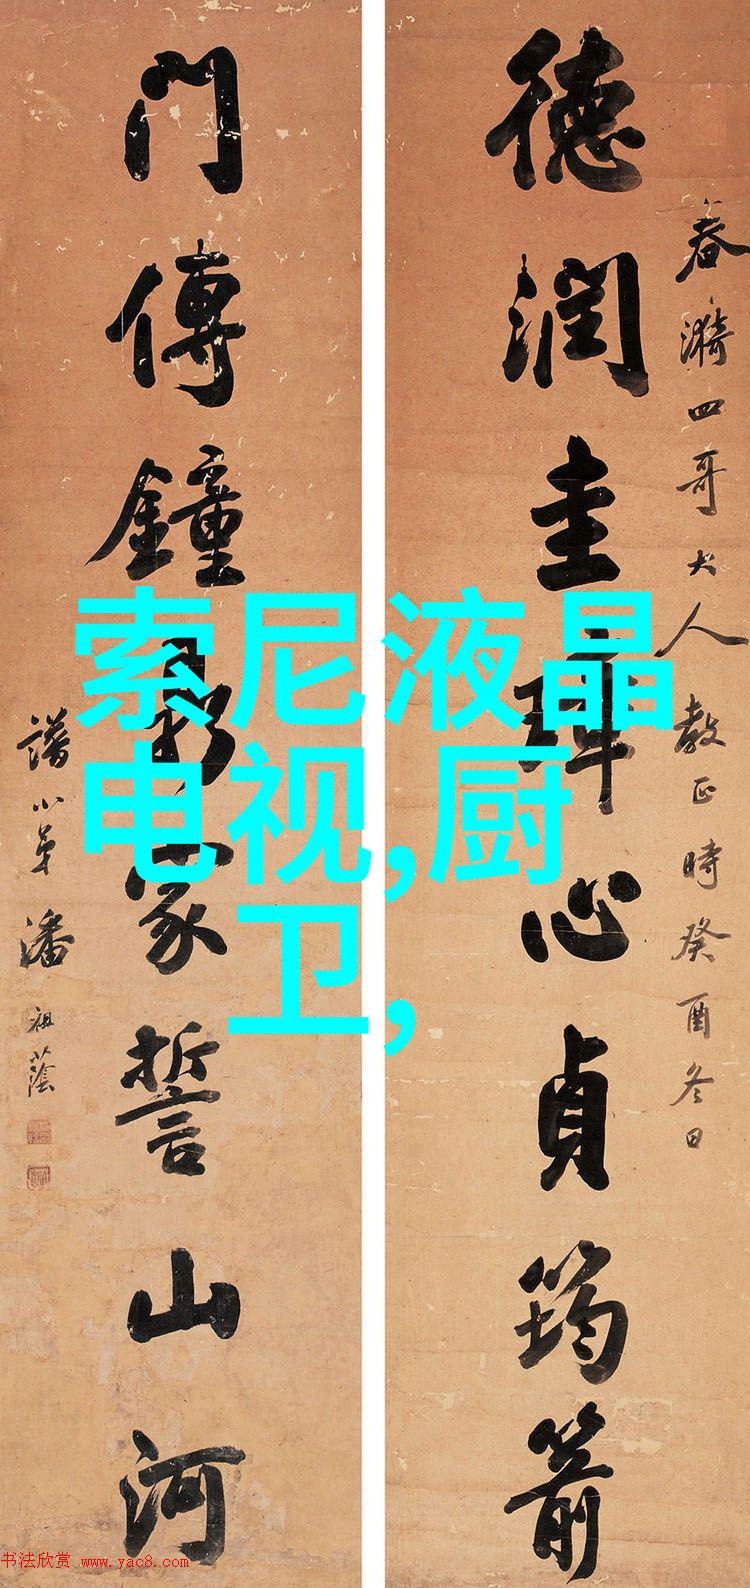 德潤圭璋心貞筠箭
春漪四哥大人教正時癸酉冬日
門傳鐘鼎家誓山河
譜小弟潘祖蔭
索尼液晶
电视,厨
卫,
书法欣赏 www.yac8.com